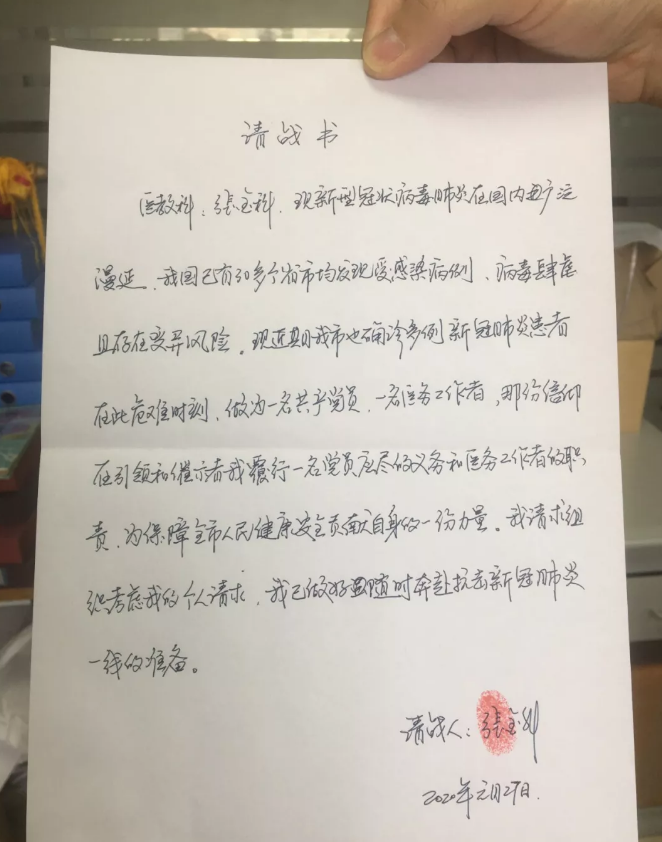 请战书
医教科:张宝科,现新型冠状病毒肺炎在国内西广泛
漫延,我国已有30多个省市均发现受感染病例、病毒肆虐
且存在变异风险。现近期我市也确诊多例新冠肺炎患者
在此危难时刻,做为一名共产党员,一名医务工作者,那份信仰
在引领和催示着我履行一名党员应尽的义务和医务工作者的职
责,为保障全市人民健康安全贡献自身的一份力量。我请求组
织考虑我的个人请求,我已做好随时奔赴抗击新冠肺炎
一线的准备。
请战人:张宝科
2020年元月27日.